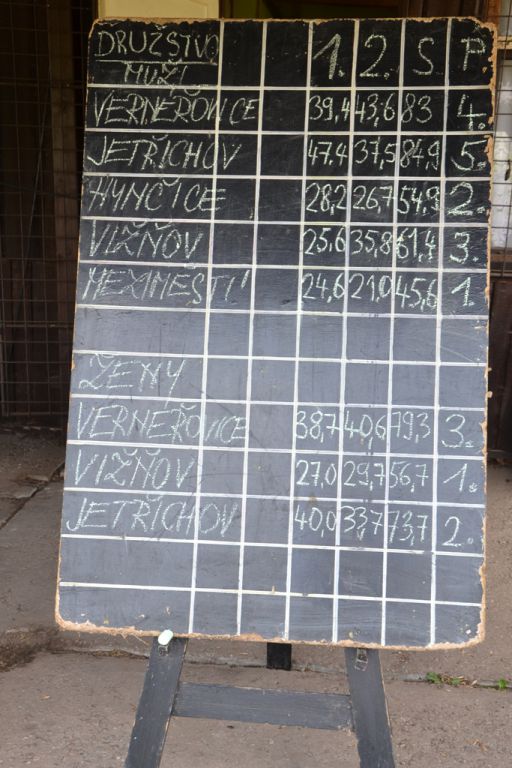 DRUŽSTVO 1. 2. S P
MUŽI
VERNEŘOVICE 39,4 43,6 83 4.
JETŘICHOV 47.4 37,5 84,9 5.
HYNČICE 28,2 26,7 54,9 2.
VIŽŇOV 25,6 35,8 61,4 3.
MEZIMĚSTÍ 24,6 21,0 45,6 1.
ŽENY
VERNEŘOVICE 38,7 40,6 79,3 3.
VIŽŇOV 27,0 29,7 56,7 1.
JETŘICHOV 40,0 33,7 73,7 2.